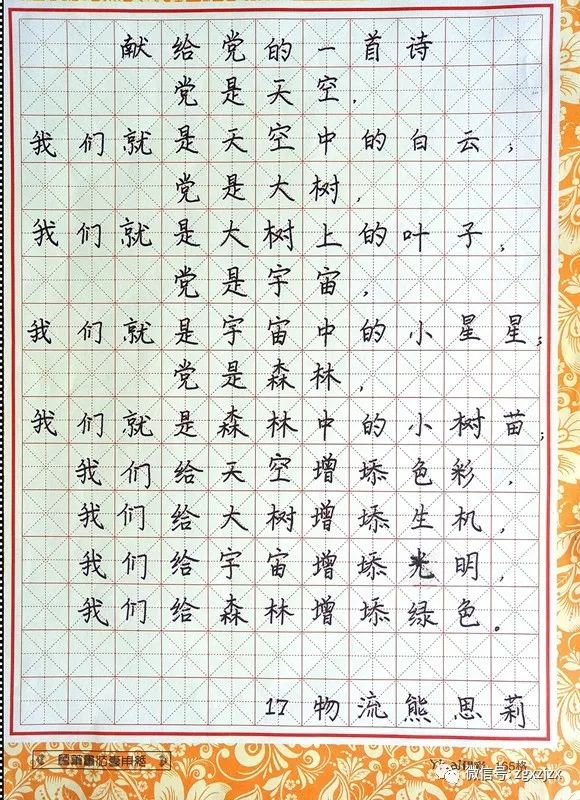 献给党的一首诗
党是天空,
我们就是天空中的白云;
党是大树,
我们就是大树上的叶子;
党是宇宙,
我们就是宇宙中的小星星;
党是森林,
我们就是森林中的小树苗;
我们给天空增添色彩,
我们给大树增添生机,
我们给宇宙增添光明,
我们给森林增添绿色。
17物流熊思莉
165格
微信号: zgxzjzx